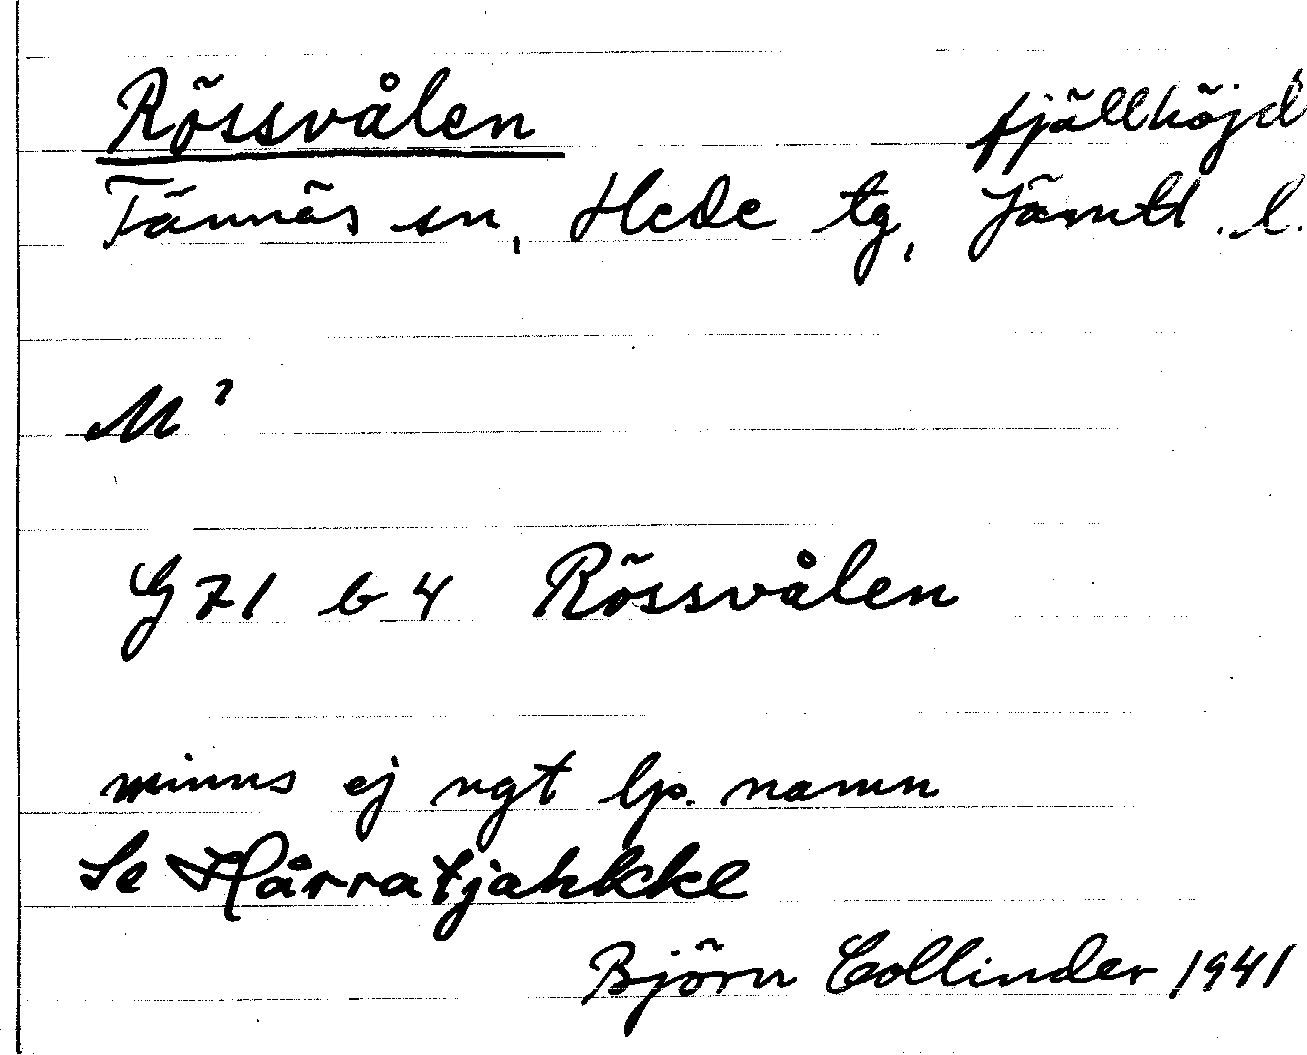 Rössvålen fjällhöjd
Tännäs sn, Hede tg, Jämtl. l.
M ?
G 71 b 4 Rössvålen
minns ej ngt lp. namn
Se Hårratjahkke
Björn Collinder 1941